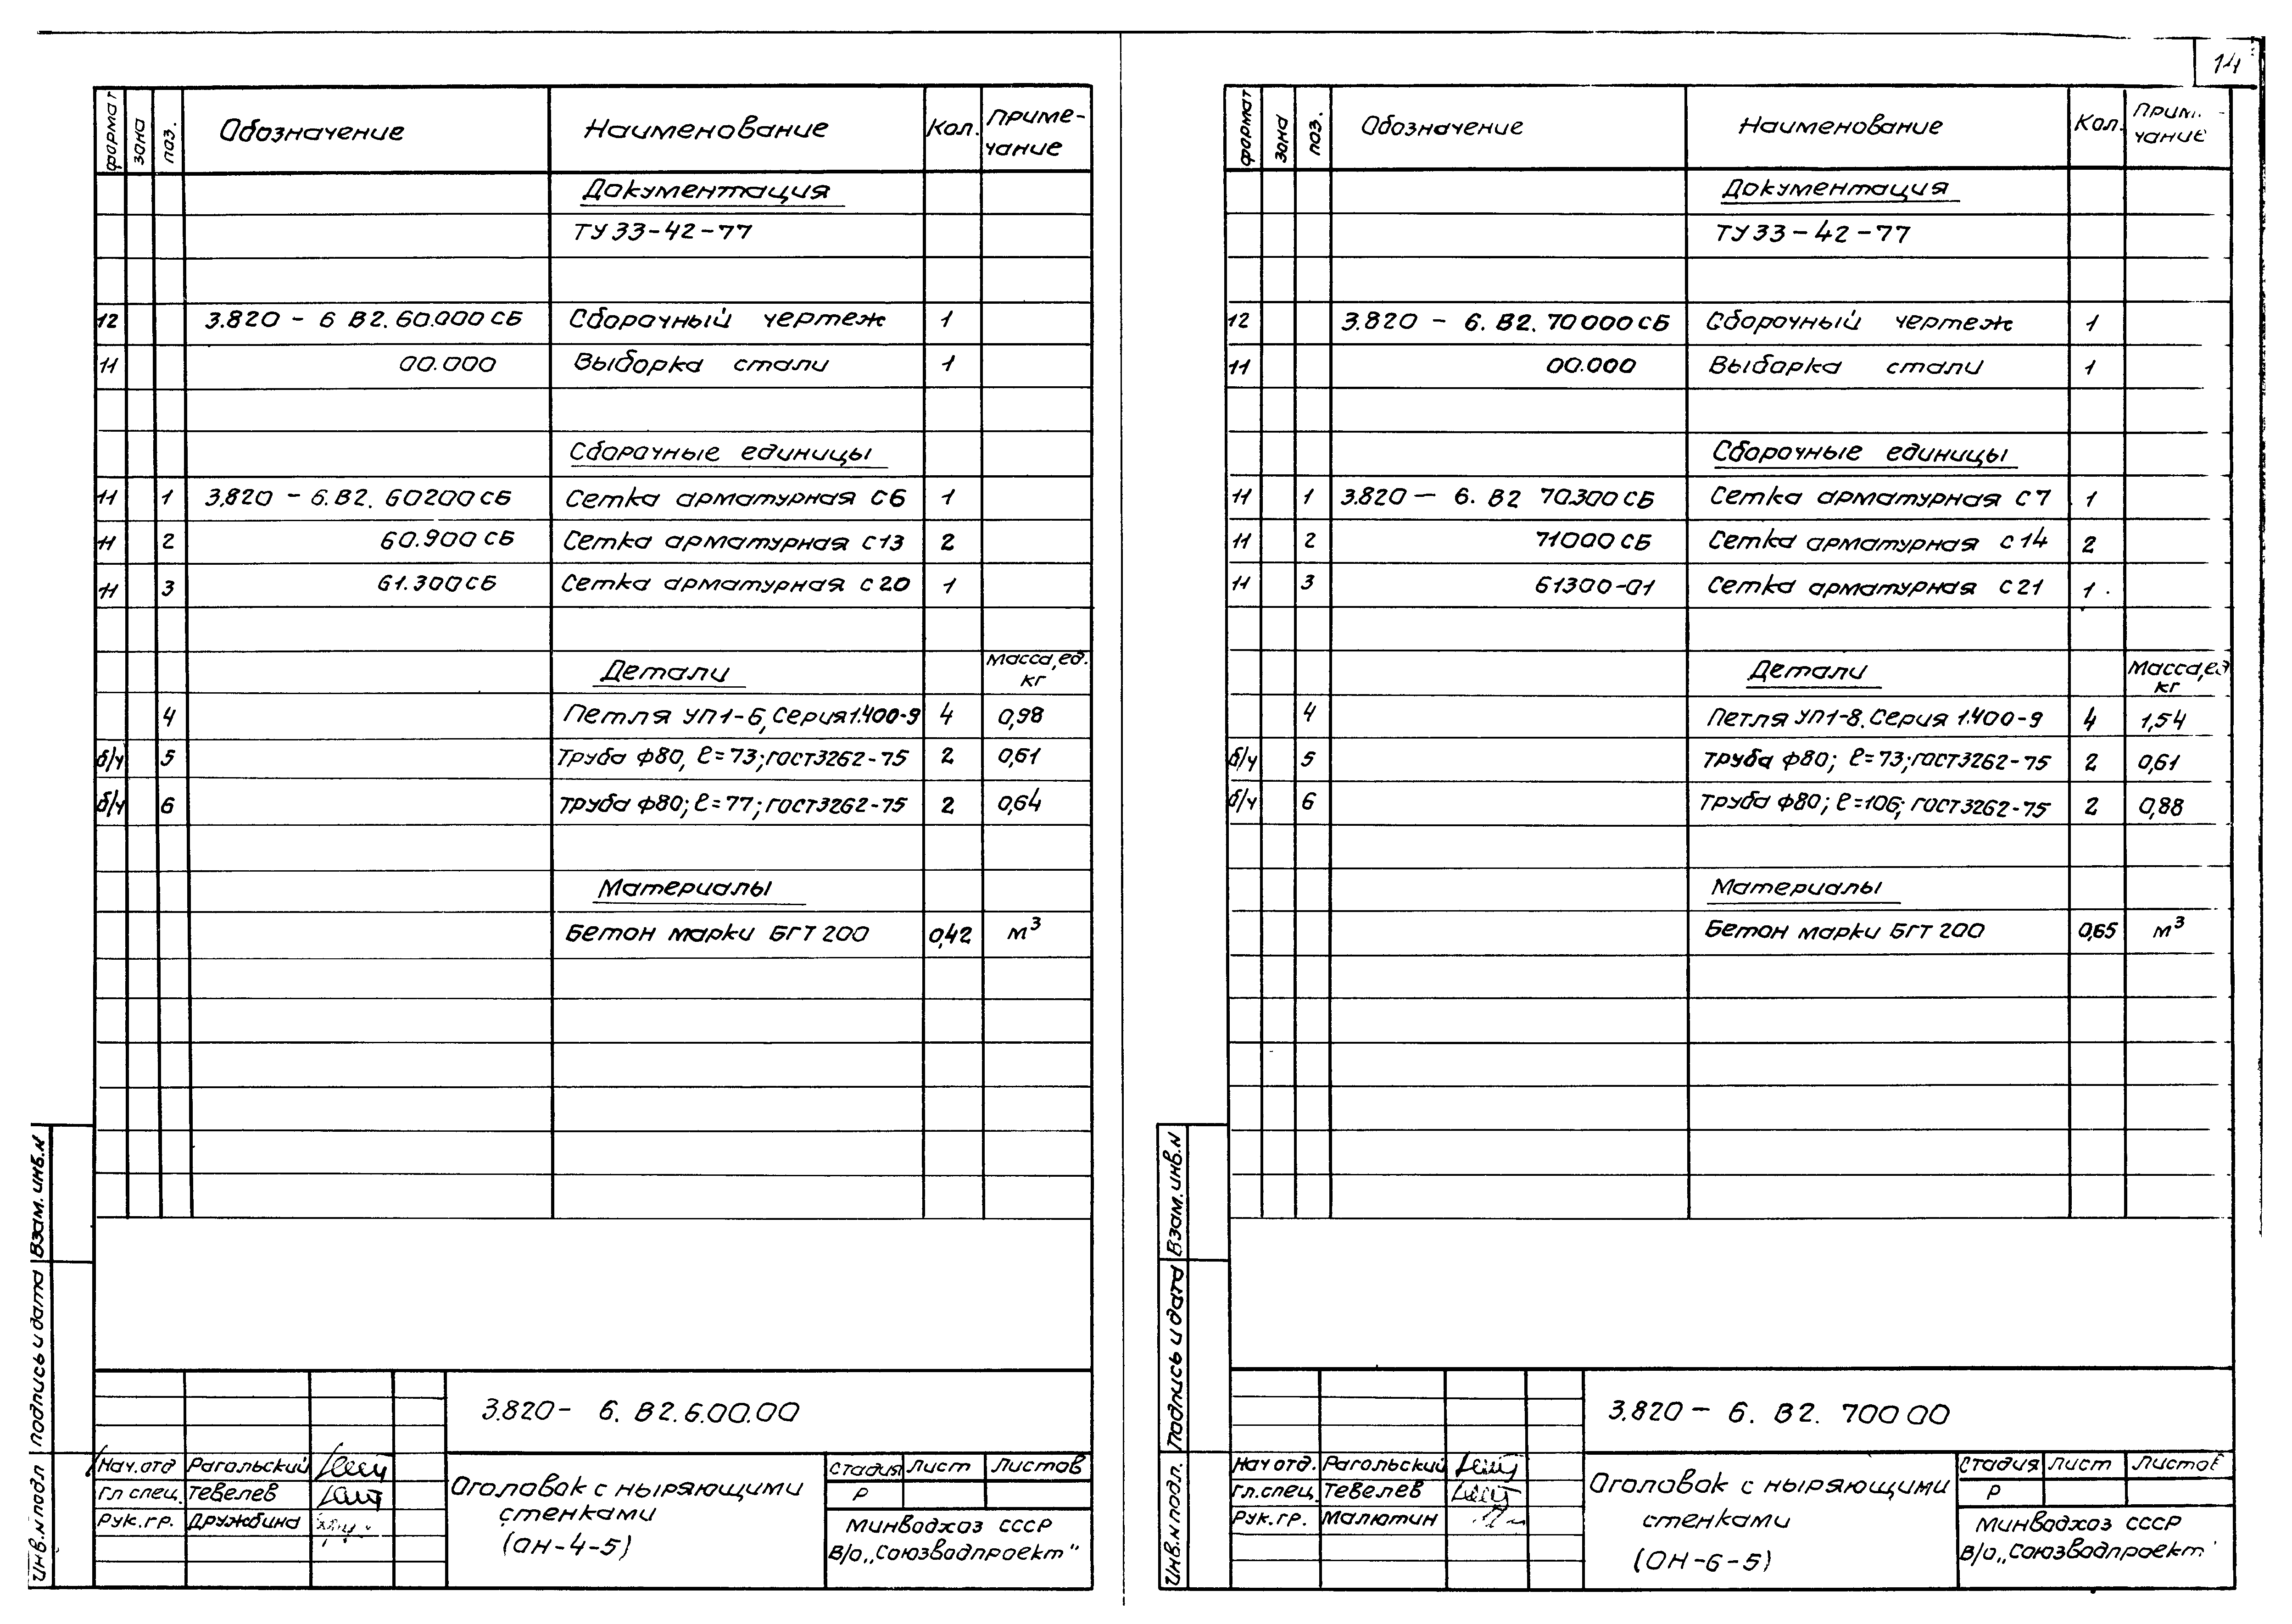 14
формат зона поз. Обозначение Наименование Кол. Приме-
чание
Документация
ТУ 33-42-77
12 3.820 - 6 В2. 60.000 СБ Сборочный чертеж 1
11 00.000 Выборка стали 1
Сборочные единицы
11 1 3.820 - 6. В2. 60200 СБ Сетка арматурная С6 1
11 2 60.900 СБ Сетка арматурная С13 2
11 3 61.300 СБ Сетка арматурная С20 1
Детали Масса, ед.
кг
4 Петля УП1-6, Серия 1.400-9 4 0,98
б/ч 5 Труба ф80, ℓ=73; ГОСТ 3262-75 2 0,61
б/ч 6 Труба ф80; ℓ=77; ГОСТ 3262-75 2 0,64
Материалы
Бетон марки БГТ 200 0,42 м³
Инв.N подл Подпись и дата Взам. инв.N
3.820- 6. В2.6.00.00
Нач.отд Рагольский
Гл спец. Тевелев
Рук.гр. Дружбина
Оголовок с ныряющими
стенками
(ОН-4-5)
Стадия Лист Листов
Р
Минводхоз СССР
В/О „Союзводпроект"
формат зона поз. Обозначение Наименование Кол. Прим
чание
Документация
ТУ 33-42-77
12 3.820 - 6. В2. 70000 СБ Сборочный чертеж 1
11 00.000 Выборка стали 1
Сборочные единицы
11 1 3.820 - 6. В2 70.300 СБ Сетка арматурная С7 1
11 2 71000 СБ Сетка арматурная С14 2
11 3 61300-01 Сетка арматурная С21 1
Детали Масса, ед
кг
4 Петля УП1-8. Серия 1.400-9 4 1,54
б/ч 5 Труба ф80; ℓ=73; ГОСТ 3262-75 2 0,61
б/ч 6 Труба ф80; ℓ=106; ГОСТ 3262-75 2 0,88
Материалы
Бетон марки БГТ 200 0,65 м³
Инв.N подл. Подпись и дата Взам. инв.N
3.820 - 6. В2. 700 00
Нач отд. Рагольский
Гл.спец. Тевелев
Рук.гр. Малютин
Оголовок с ныряющими
стенками
(ОН-6-5)
Стадия Лист Листов
Р
Минводхоз СССР
В/О „Союзводпроект"